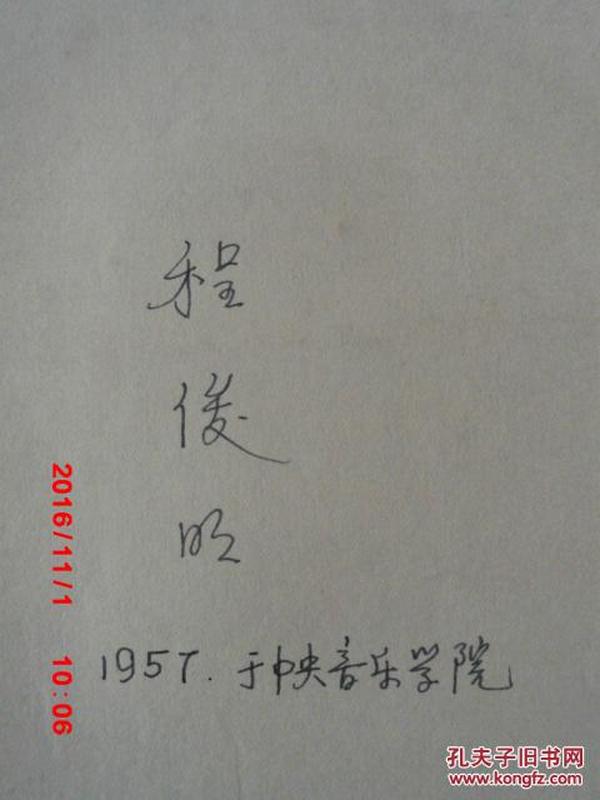 程
俊
明
1957.于中央音乐学院
2016/11/1 10:06
孔夫子旧书网
www.kongfz.com